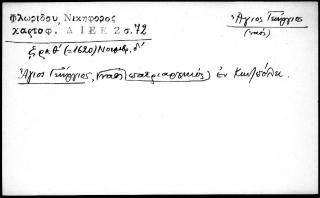 Φλωρίδου, Νικηφόρος
χαρτοφ. ΔΙΕΕ 2 σ. 72
Ἅγιος Γεώργιος
(ναός)
͵ζρκθʹ (=1620) Νοεμβρ. δʹ
Ἅγιος Γεώργιος, (ναὸς πατριαρχικός) ἐν Κων]πόλει.